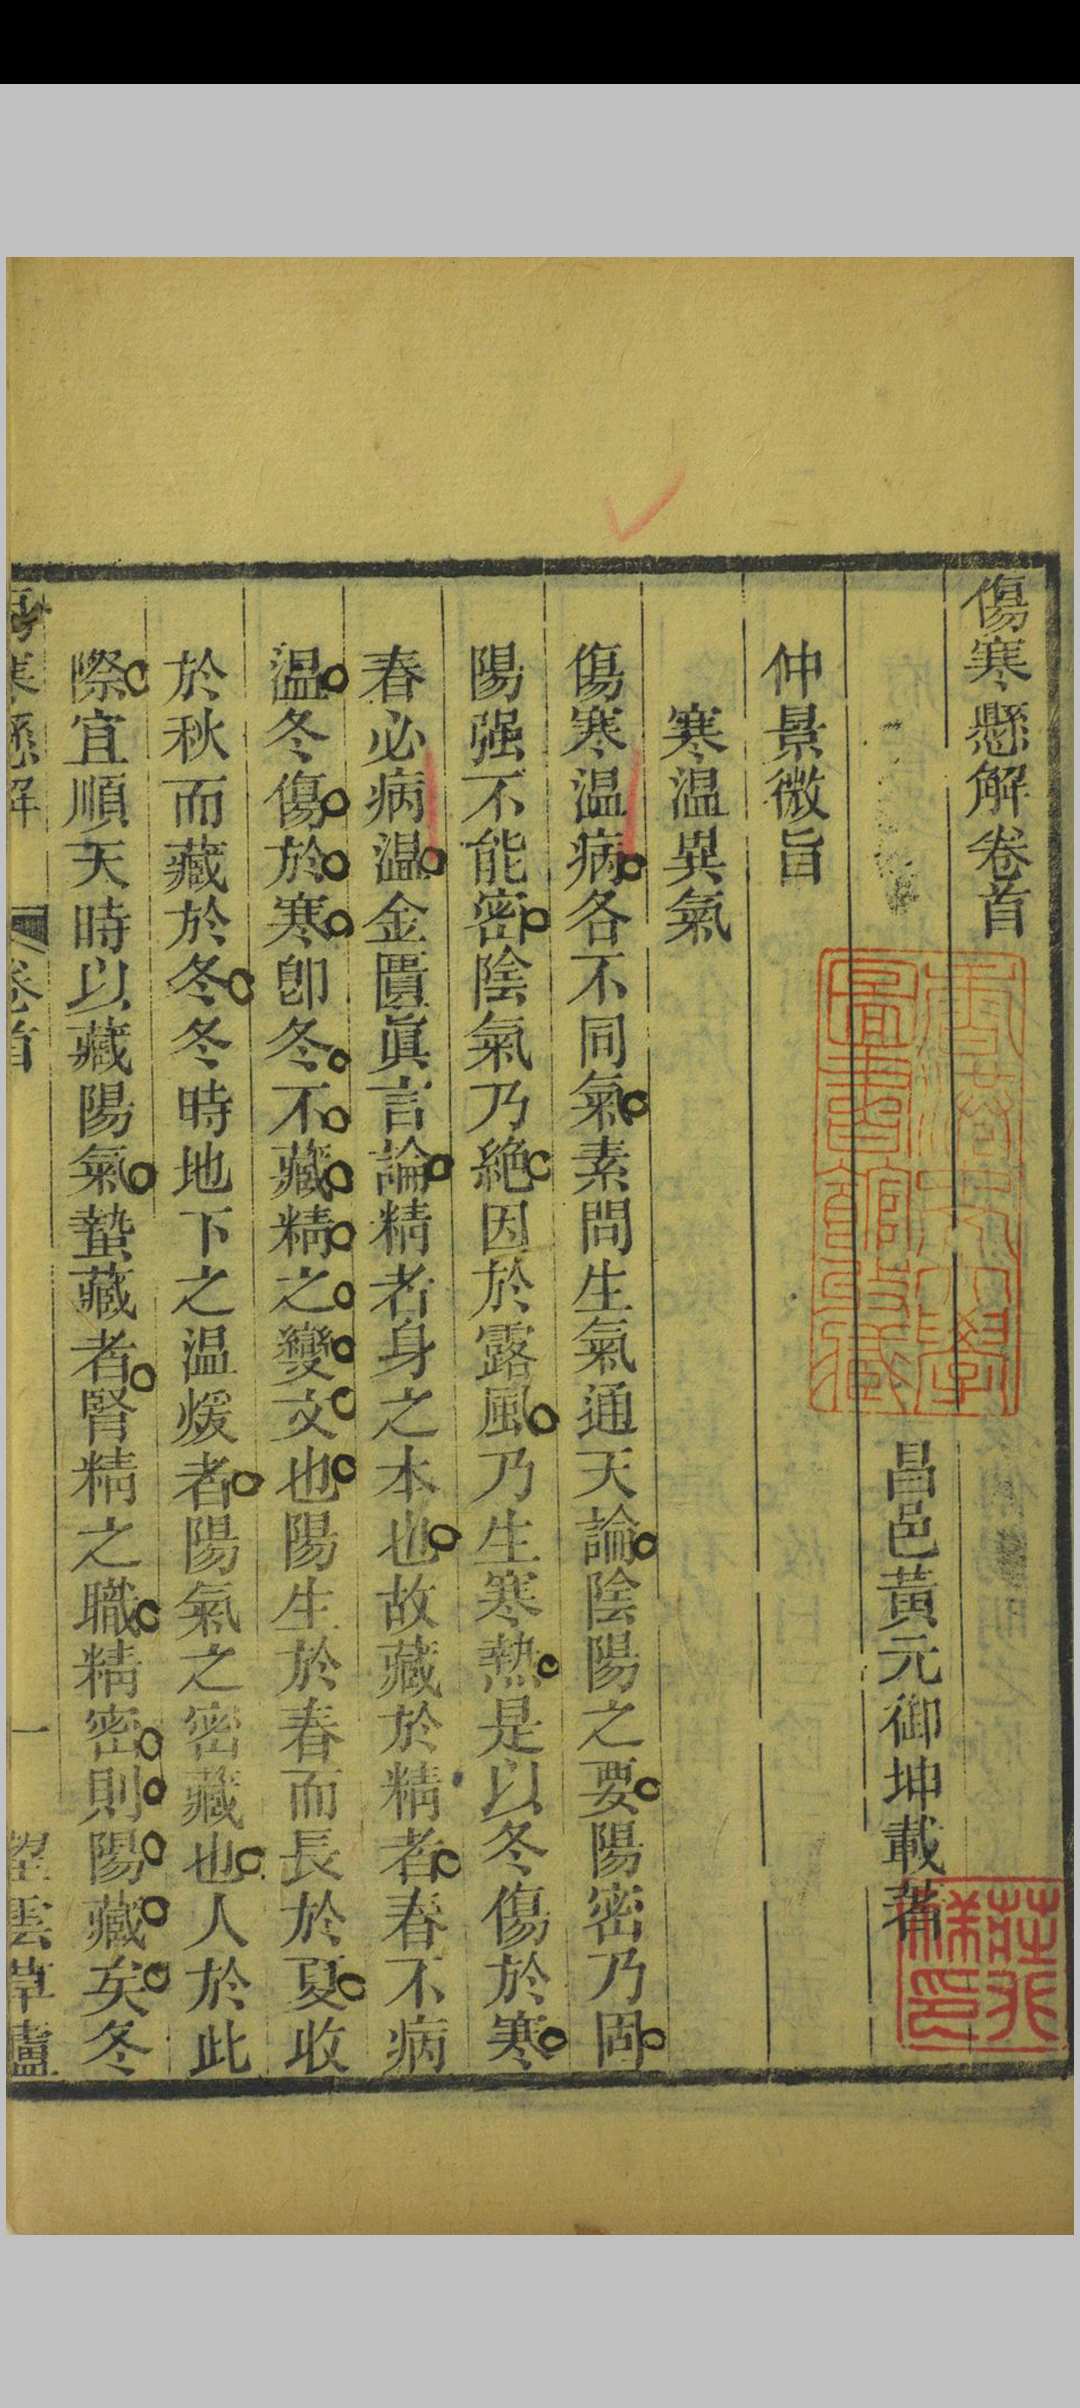 傷寒懸解卷首
昌邑黃元御坤載著
仲景微旨
寒溫異氣
傷寒温病各不同氣素問生氣通天論陰陽之要陽密乃固
陽强不能密陰氣乃絕因於露風乃生寒熱是以冬傷於寒
春必病温金匱眞言論精者身之本也故藏於精者春不病
温冬傷於寒卽冬不藏精之變文也陽生於春而長於夏收
於秋而藏於冬冬時地下之温煖者陽氣之密藏也人於此
際宜順天時以藏陽氣蟄藏者腎精之職精密則陽藏矣冬
傷寒懸解 卷首 一 望雲草廬
圖書館攷藏